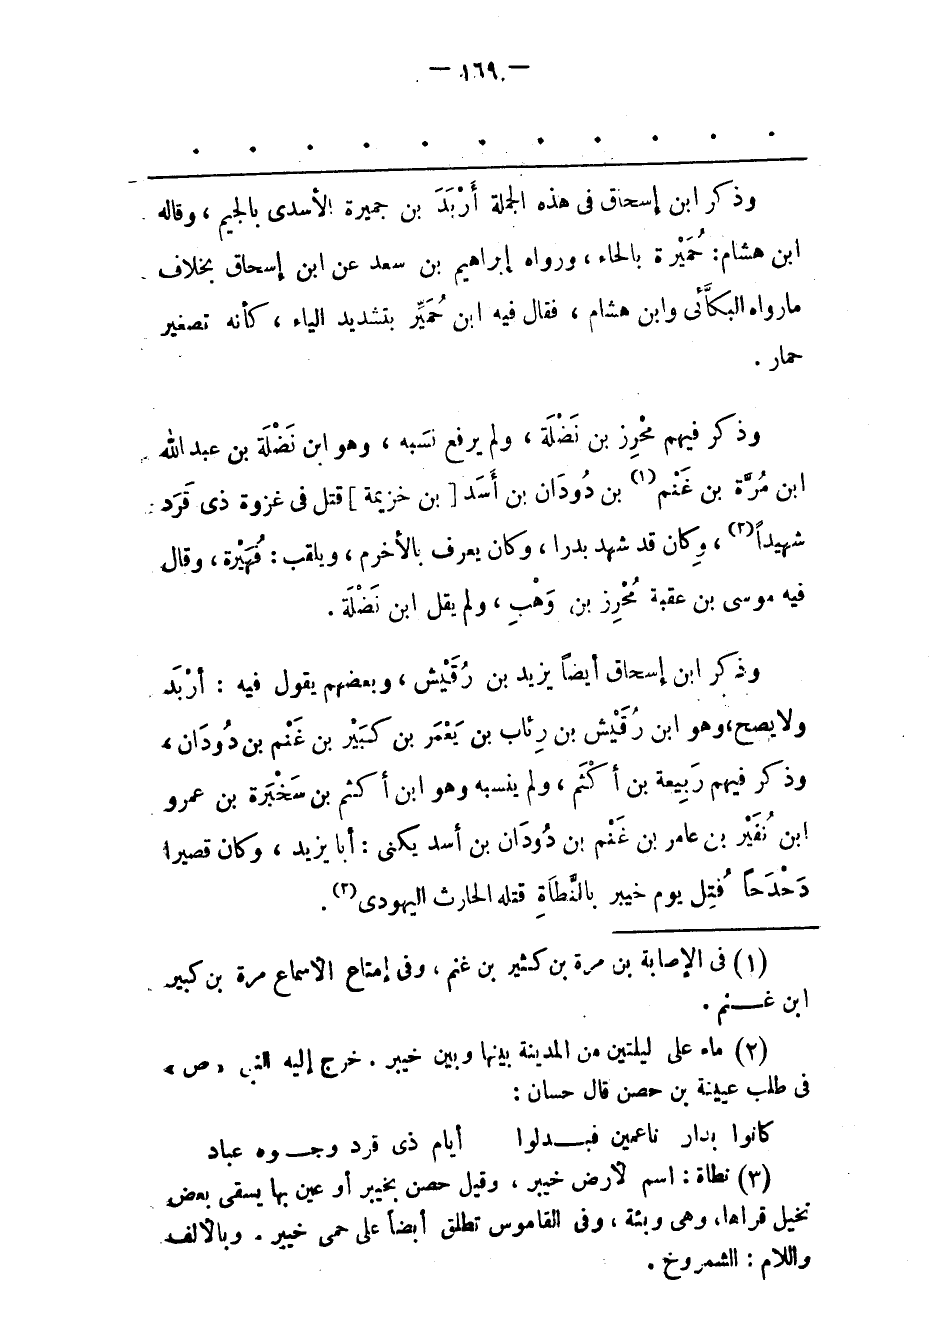 — ١٦٩ —
. . . . . . . . . . .
وذكر ابن إسحاق فى هذه الجملة أَرْبَدَ بن جميرة الأسدى بالجيم ، وقاله
ابن هشام: حُمَيْرة بالحاء ، ورواه إبراهيم بن سعد عن ابن إسحاق بخلاف
مارواه البكَّائى وابن هشام ، فقال فيه ابن حُمَيِّر بتشديد الياء ، كأنه تصغير
حمار .
وذكر فيهم مُحْرِز بن نَضْلَة ، ولم يرفع نسَبه ، وهو ابن نَضْلَة بن عبد الله
ابن مُرَّة بن غَنْم (١) بن دُودَان بن أَسَد [ بن خزيمة ] قتل فى غزوة ذى قَرَد
شهيداً (٢) ، وكان قد شهد بدرا ، وكان يعرف بالأخرم ، ويلقب : فُهَيْرة ، وقال
فيه موسى بن عقبة مُحْرِز بن وَهْبِ ، ولم يقل ابن نَضْلَة .
وذكر ابن إسحاق أيضاً يزيد بن رُقَيْش ، وبعضهم يقول فيه : أرْبَد
ولا يصح ، وهو ابن رُقَيْش بن رِئاب بن يَعْمَر بن كَبَيْر بن غَنْم بن دودَان ،
وذكر فيهم رَبيعة بن أكْثَم ، ولم ينسبه وهو ابن أكثم بن سَخْبَرة بن عمرو
ابن نُفَيْر بن عامر بن غَنْم بن دُودَان بن أسد يكنى : أبا يزيد ، وكان قصيرا
دَحْدَحاً قُتِل يوم خيبر بالنَّطَاةِ قتله الحارث اليهودى (٣) .
(١) فى الإصابة بن مرة بن كثير بن غنم ، وفى إمتاع الأسماع مرة بن كبير
ابن غــنم .
(٢) ماء على ليلتين من المدينة بينها وبين خيبر . خرج إليه النبى « ص »
فى طلب عيينة بن حصن قال حسان :
كانوا بدار ناعمين فبــدلوا أيام ذى قرد وجــوه عباد
(٣) نطاة : اسم لأرض خيبر ، وقيل حصن بخيبر أو عين بها يسقى بعض
نخيل قراها، وهى وبئة ، وفى القاموس تطلق أيضاً على حمى خيبر . وبالألف
واللام : الشمروخ .